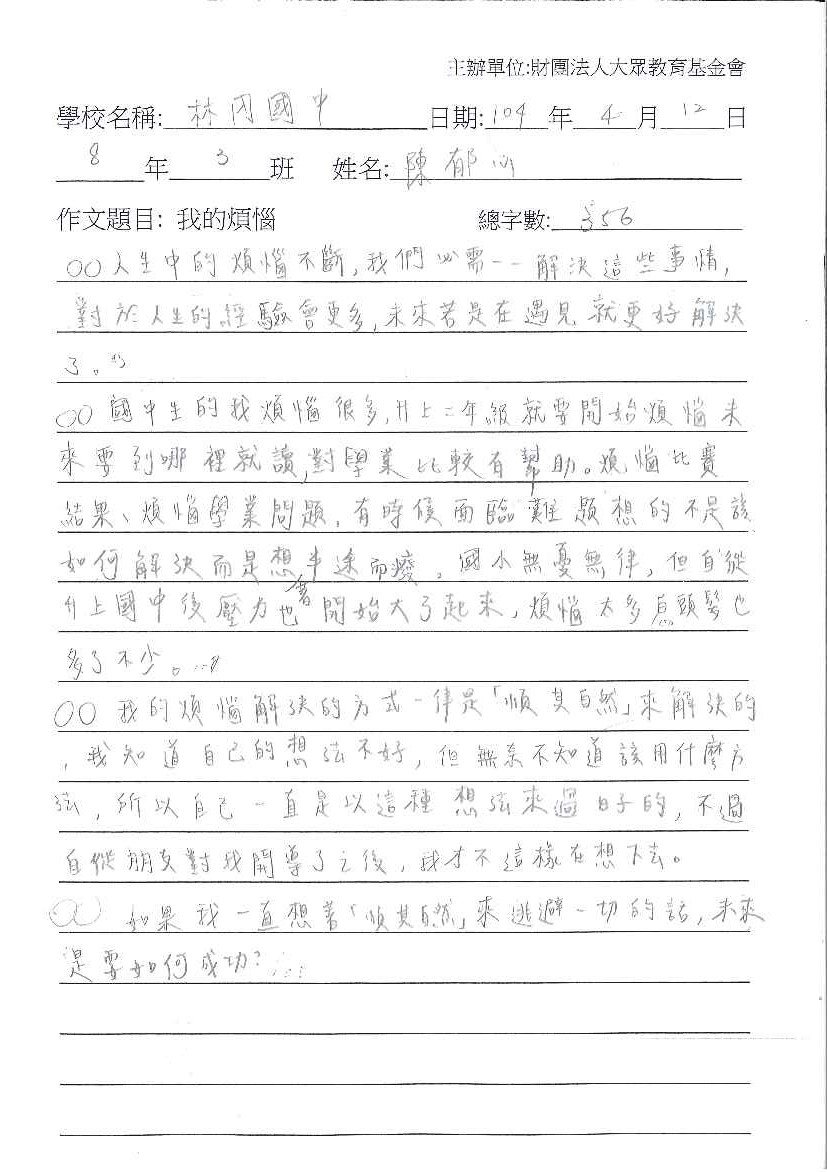 主辦單位:財團法人大眾教育基金會
學校名稱: 林內國中 日期: 104 年 4 月 12 日
8 年 3 班 姓名: 陳郁
作文題目: 我的煩惱 總字數: 356
○○人生中的煩惱不斷,我們必需一一解決這些事情,
對於人生的經驗會更多,未來若是在遇見就更好解決
了。
○○國中生的我煩惱很多,升上二年級就要開始煩惱未
來要到哪裡就讀,對學業比較有幫助。煩惱比賽
結果、煩惱學業問題,有時候面臨難題想的不是該
如何解決而是想半途而癈。國小無憂無律,但自從
升上國中後壓力也著開始大了起來,煩惱太多白頭髮也
多了不少。
○○我的煩惱解決的方式一律是「順其自然」來解決的
,我知道自己的想法不好,但無奈不知道該用什麼方
法,所以自己一直是以這種想法來過日子的,不過
自從朋友對我開導了之後,我才不這樣在想下去。
○○如果我一直想著「順其自然」來逃避一切的話,未來
是要如何成功?